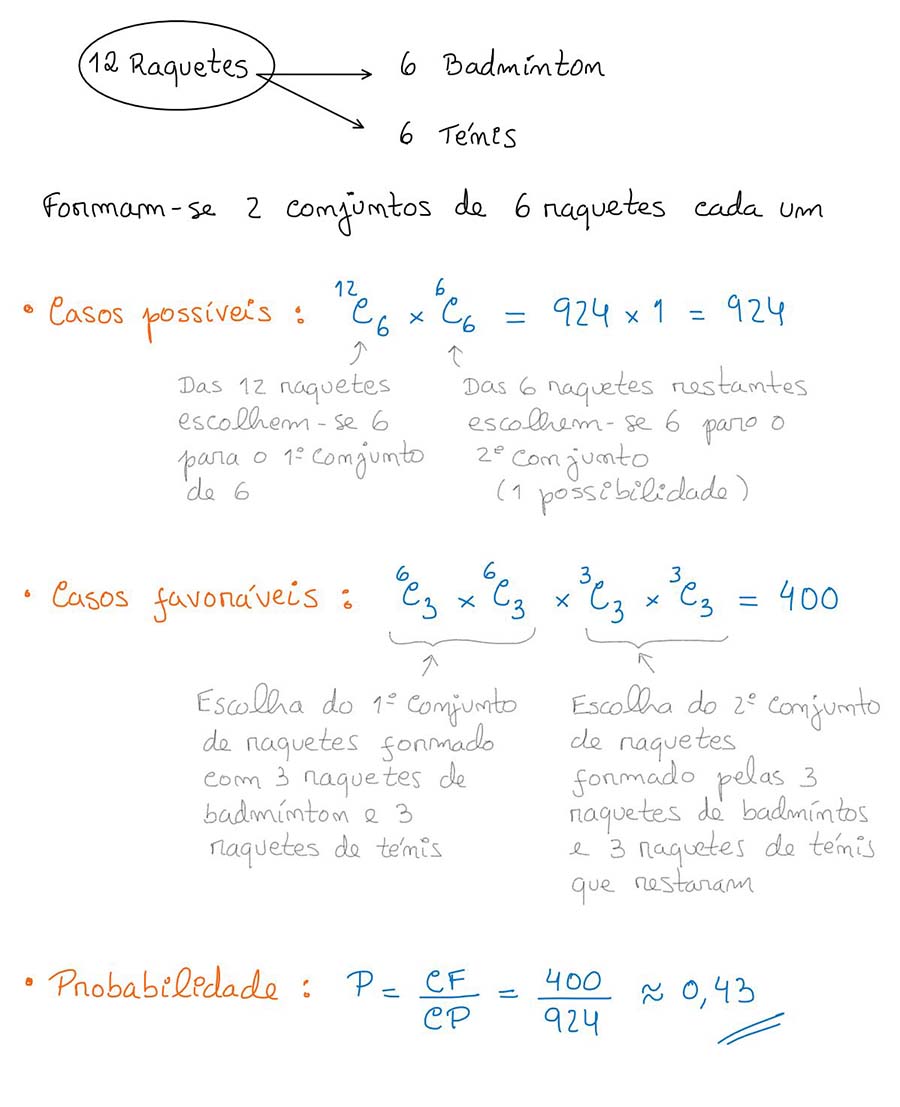 12 Raquetes
6 Badmínton
6 Ténis
Formam-se 2 conjuntos de 6 raquetes cada um
• Casos possíveis : ¹²C₆ × ⁶C₆ = 924 × 1 = 924
Das 12 raquetes
escolhem-se 6
para o 1º conjunto
de 6
Das 6 raquetes restantes
escolhem-se 6 para o
2º conjunto
(1 possibilidade)
• Casos favoráveis : ⁶C₃ × ⁶C₃ × ³C₃ × ³C₃ = 400
Escolha do 1º conjunto
de raquetes formado
com 3 raquetes de
badmínton e 3
raquetes de ténis
Escolha do 2º conjunto
de raquetes
formado pelas 3
raquetes de badmíntos
e 3 raquetes de ténis
que restaram
• Probabilidade : P = CF/CP = 400/924 ≈ 0,43